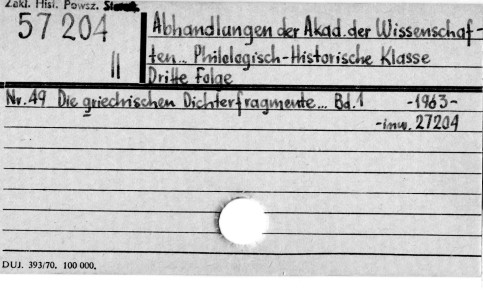 Zakł. Hist. Powsz. Staroż.
57 204
II
Abhandlungen der Akad. der Wissenschaf-
ten... Philologisch-Historische Klasse
Dritte Folge
Nr. 49 Die griechischen Dichterfragmente... Bd. 1 -1963-
-inw. 27204
DUJ. 393/70. 100 000.